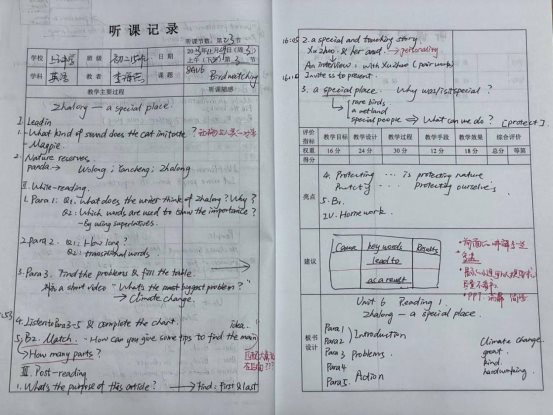 听课记录
听课节数：第23节
学校
班级 初二15班
日期
学科 英语
教者
课题 8AU6 Birdwatching
教学主要过程
听课随感
Zhalong — a special place
I. Lead in
1. What kind of sound does the cat imitate?
- Magpie.
2. Nature reserves.
panda → Wolong; Yancheng; Zhalong
II. While-reading.
1. Para 1: Q1. What does the writer think of Zhalong? Why?
Q2: Which words are used to show the importance?
- by using superlatives.
2. para 2. Q1: How long?
Q2: transitional words
3. Para 3. Find the problems & fill the table
a short video "What's the most biggest problem?"
→ Climate change.
4. Listen to Para 3-5 & complete the chart.
5. B2. Match. - How can you give some tips to find the main idea.
How many parts?
III. Post-reading
1. What's the purpose of this article? → find: first & last
16:05
2. a special and touching story
Xu Zhuo & her and.
An interview: with Xu Zhuo (pair work)
16:10
Invite ss to present.
3. a special place. Why was/is it special?
rare birds
a wetland
special people → What can we do? (protect)
评价指标
教学目标
教学设计
教学过程
教学手段
教学效果
综合评价
权重
16分
24分
30分
12分
18分
总分
等第
得分
亮点
4. Protecting ... is protecting nature
Protecting ... protecting ourselves
5. B3.
IV. Homework.
建议
Cause
key words
Results
lead to
as a result
板书设计
Unit 6 Reading 1.
Zhalong — a special place.
Para 1
Para 2
Introduction
Para 3 Problems.
Para 4
Para 5.
Action
Climate change.
great.
kind.
hardworking.